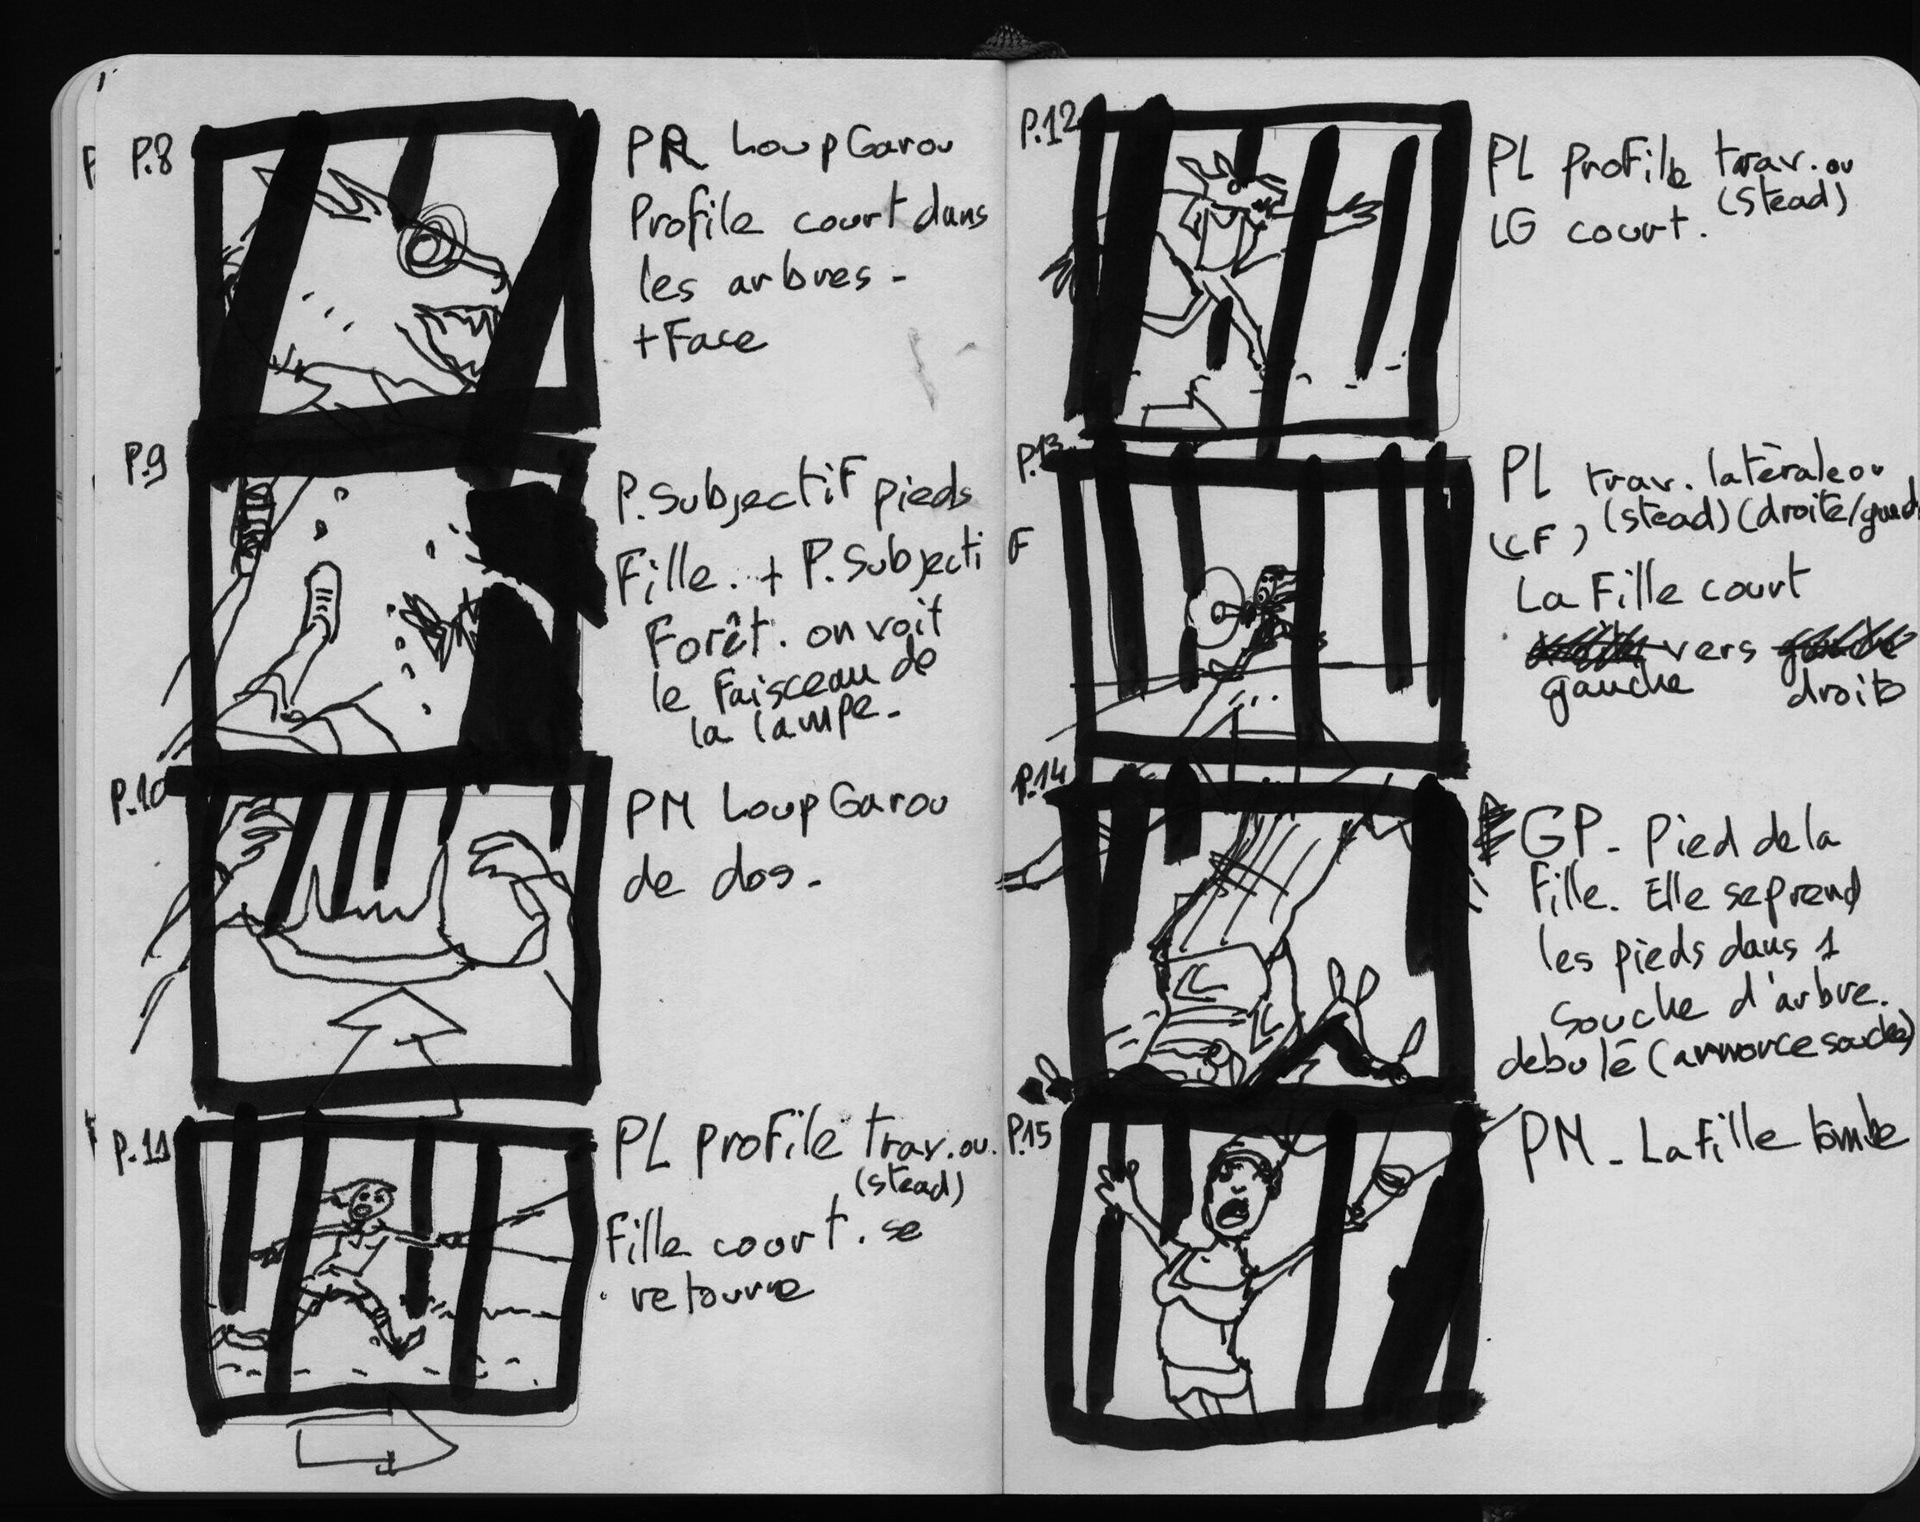 P.8
PR Loup Garou
Profile court dans
les arbres -
+ Face
P.9
P. Subjectif pieds
Fille. + P. Subjecti
F
Forêt. on voit
le faisceau de
la lampe -
P.10
PM Loup Garou
de dos -
P.11
PL profile trav. ou.
(stead)
Fille court. se
retourne
P.12
PL profile trav. ou
(stead)
LG court.
P.13
PL trav. latérale ou
(CF) (stead) (droite/
La Fille court
vers
gauche droite
P.14
GP - Pied de la
Fille. Elle se prend
les pieds dans 1
souche d'arbre.
(amorce souche)
P.15
PM - La Fille tombe